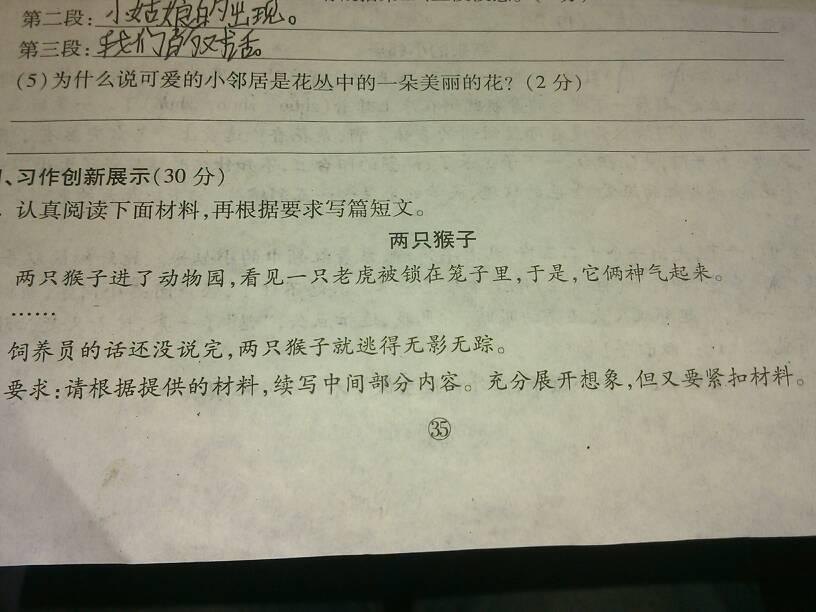 第二段:小姑娘的出现。
第三段:我们的对话。
(5)为什么说可爱的小邻居是花丛中的一朵美丽的花?(2分)
、习作创新展示(30分)
认真阅读下面材料,再根据要求写篇短文。
两只猴子
两只猴子进了动物园,看见一只老虎被锁在笼子里,于是,它俩神气起来。
……
饲养员的话还没说完,两只猴子就逃得无影无踪。
要求:请根据提供的材料,续写中间部分内容。充分展开想象,但又要紧扣材料。
㉟